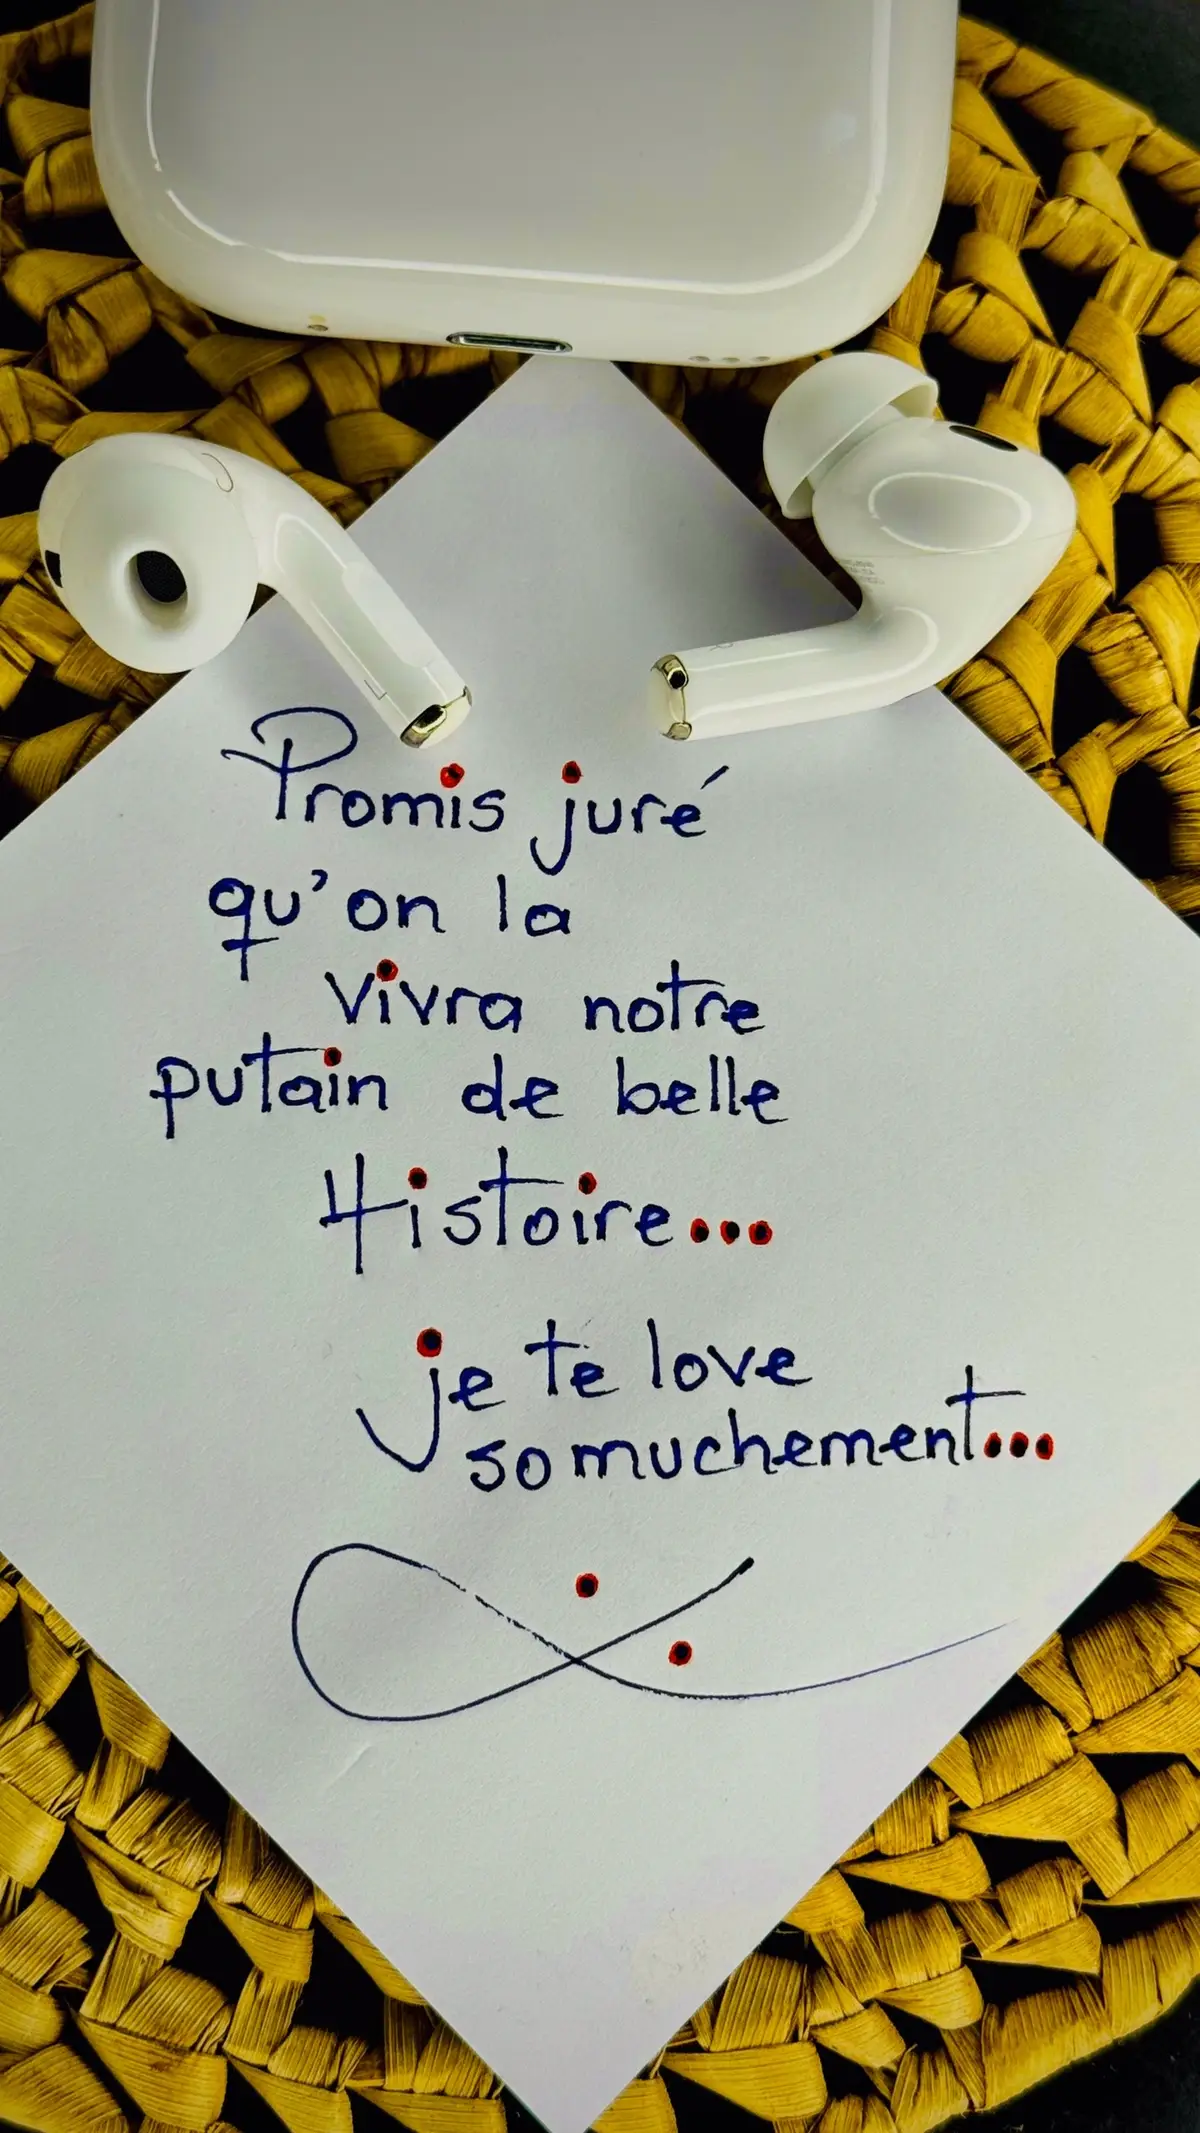 Promis juré
qu'on la
vivra notre
putain de belle
Histoire...
je te love
somuchement...